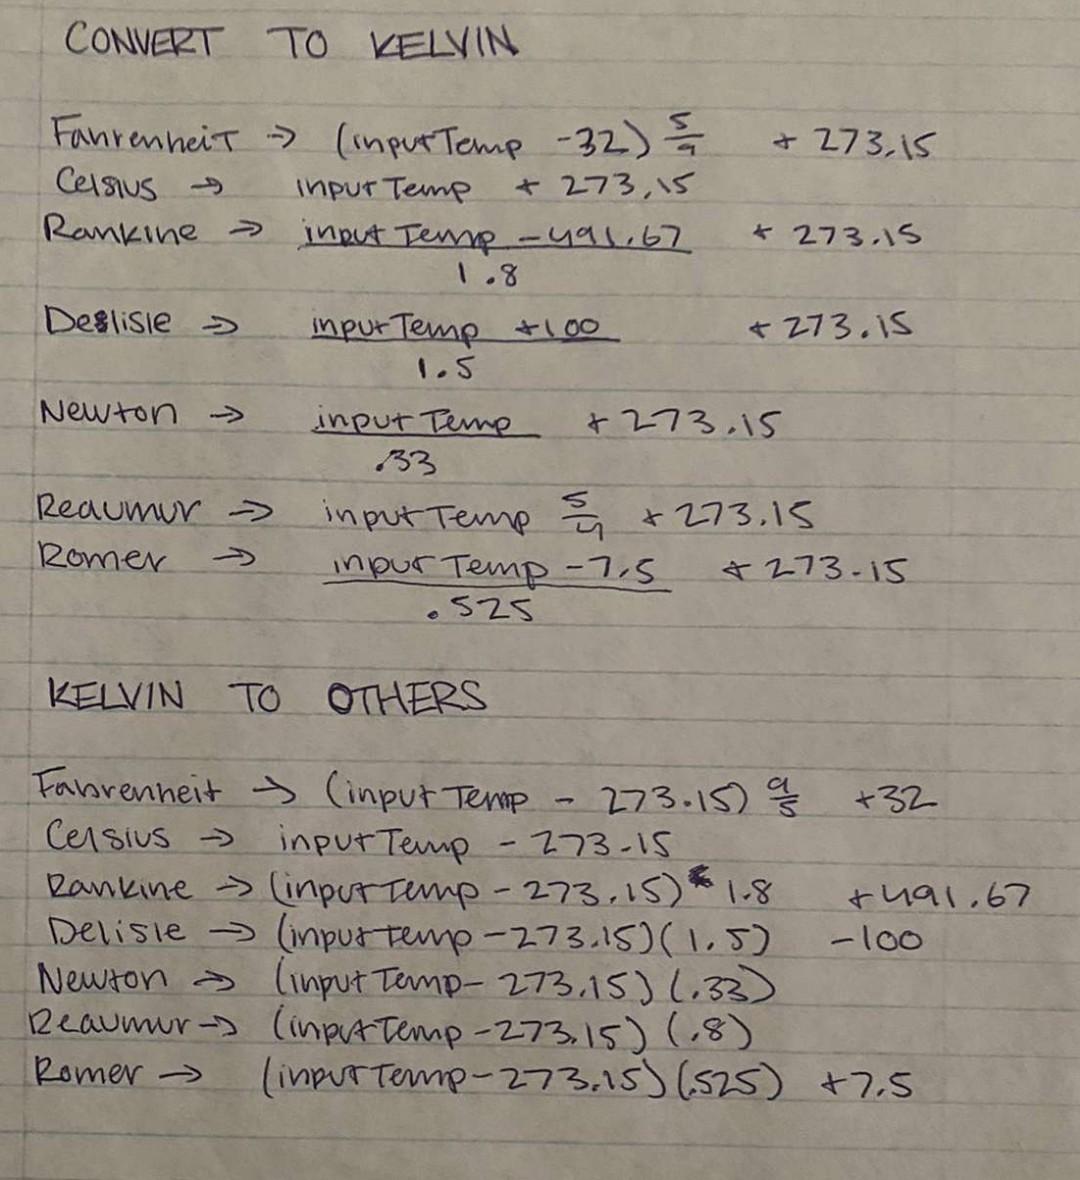 CONVERT TO KELVIN
Fahrenheit → (inputTemp - 32) 5/9 + 273.15
Celsius → inputTemp + 273.15
Rankine → inputTemp - 491.67 + 273.15
1.8
Deslisle → inputTemp + 100 + 273.15
1.5
Newton → inputTemp + 273.15
.33
Reaumur → inputTemp 5/4 + 273.15
Romer → inputTemp - 7.5 + 273.15
.525
KELVIN TO OTHERS
Fahrenheit → (inputTemp - 273.15) 9/5 + 32
Celsius → inputTemp - 273.15
Rankine → (inputTemp - 273.15) * 1.8 + 491.67
Delisle → (inputtemp - 273.15)(1.5) - 100
Newton → (inputTemp - 273.15)(.33)
Reaumur → (inputTemp - 273.15)(.8)
Romer → (inputTemp - 273.15)(.525) + 7.5